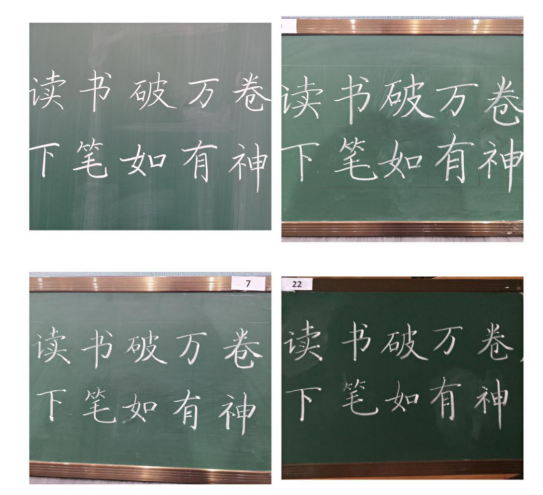 读书破万卷
下笔如有神
读书破万卷
下笔如有神
7
读书破万卷
下笔如有神
22
读书破万卷
下笔如有神